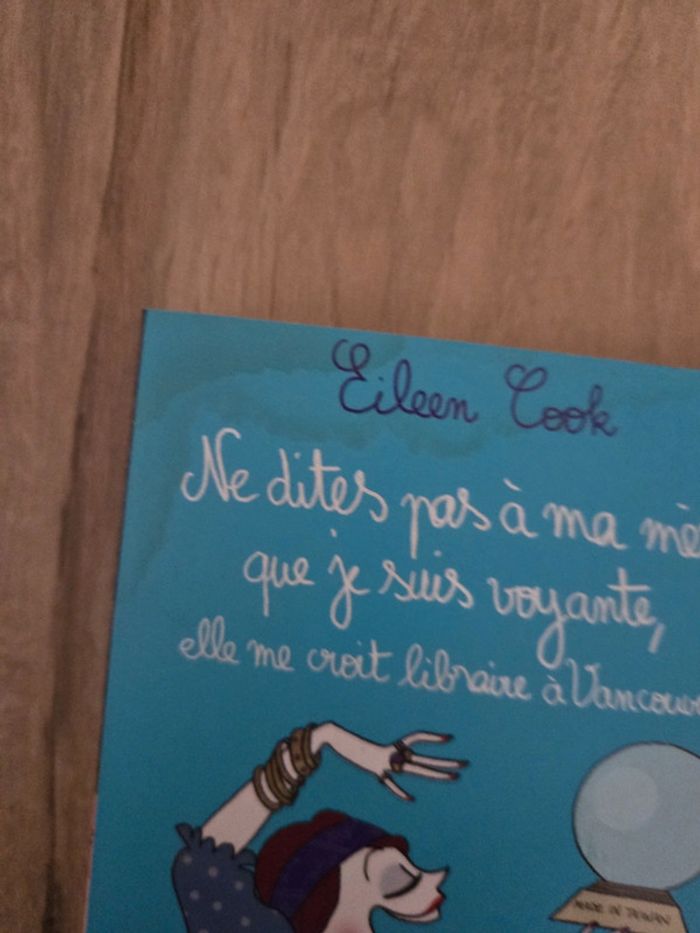 Eileen Cook
Ne dites pas à ma mè
que je suis voyante,
elle me croit libraire à Vancouv
MADE IN TAIWAN